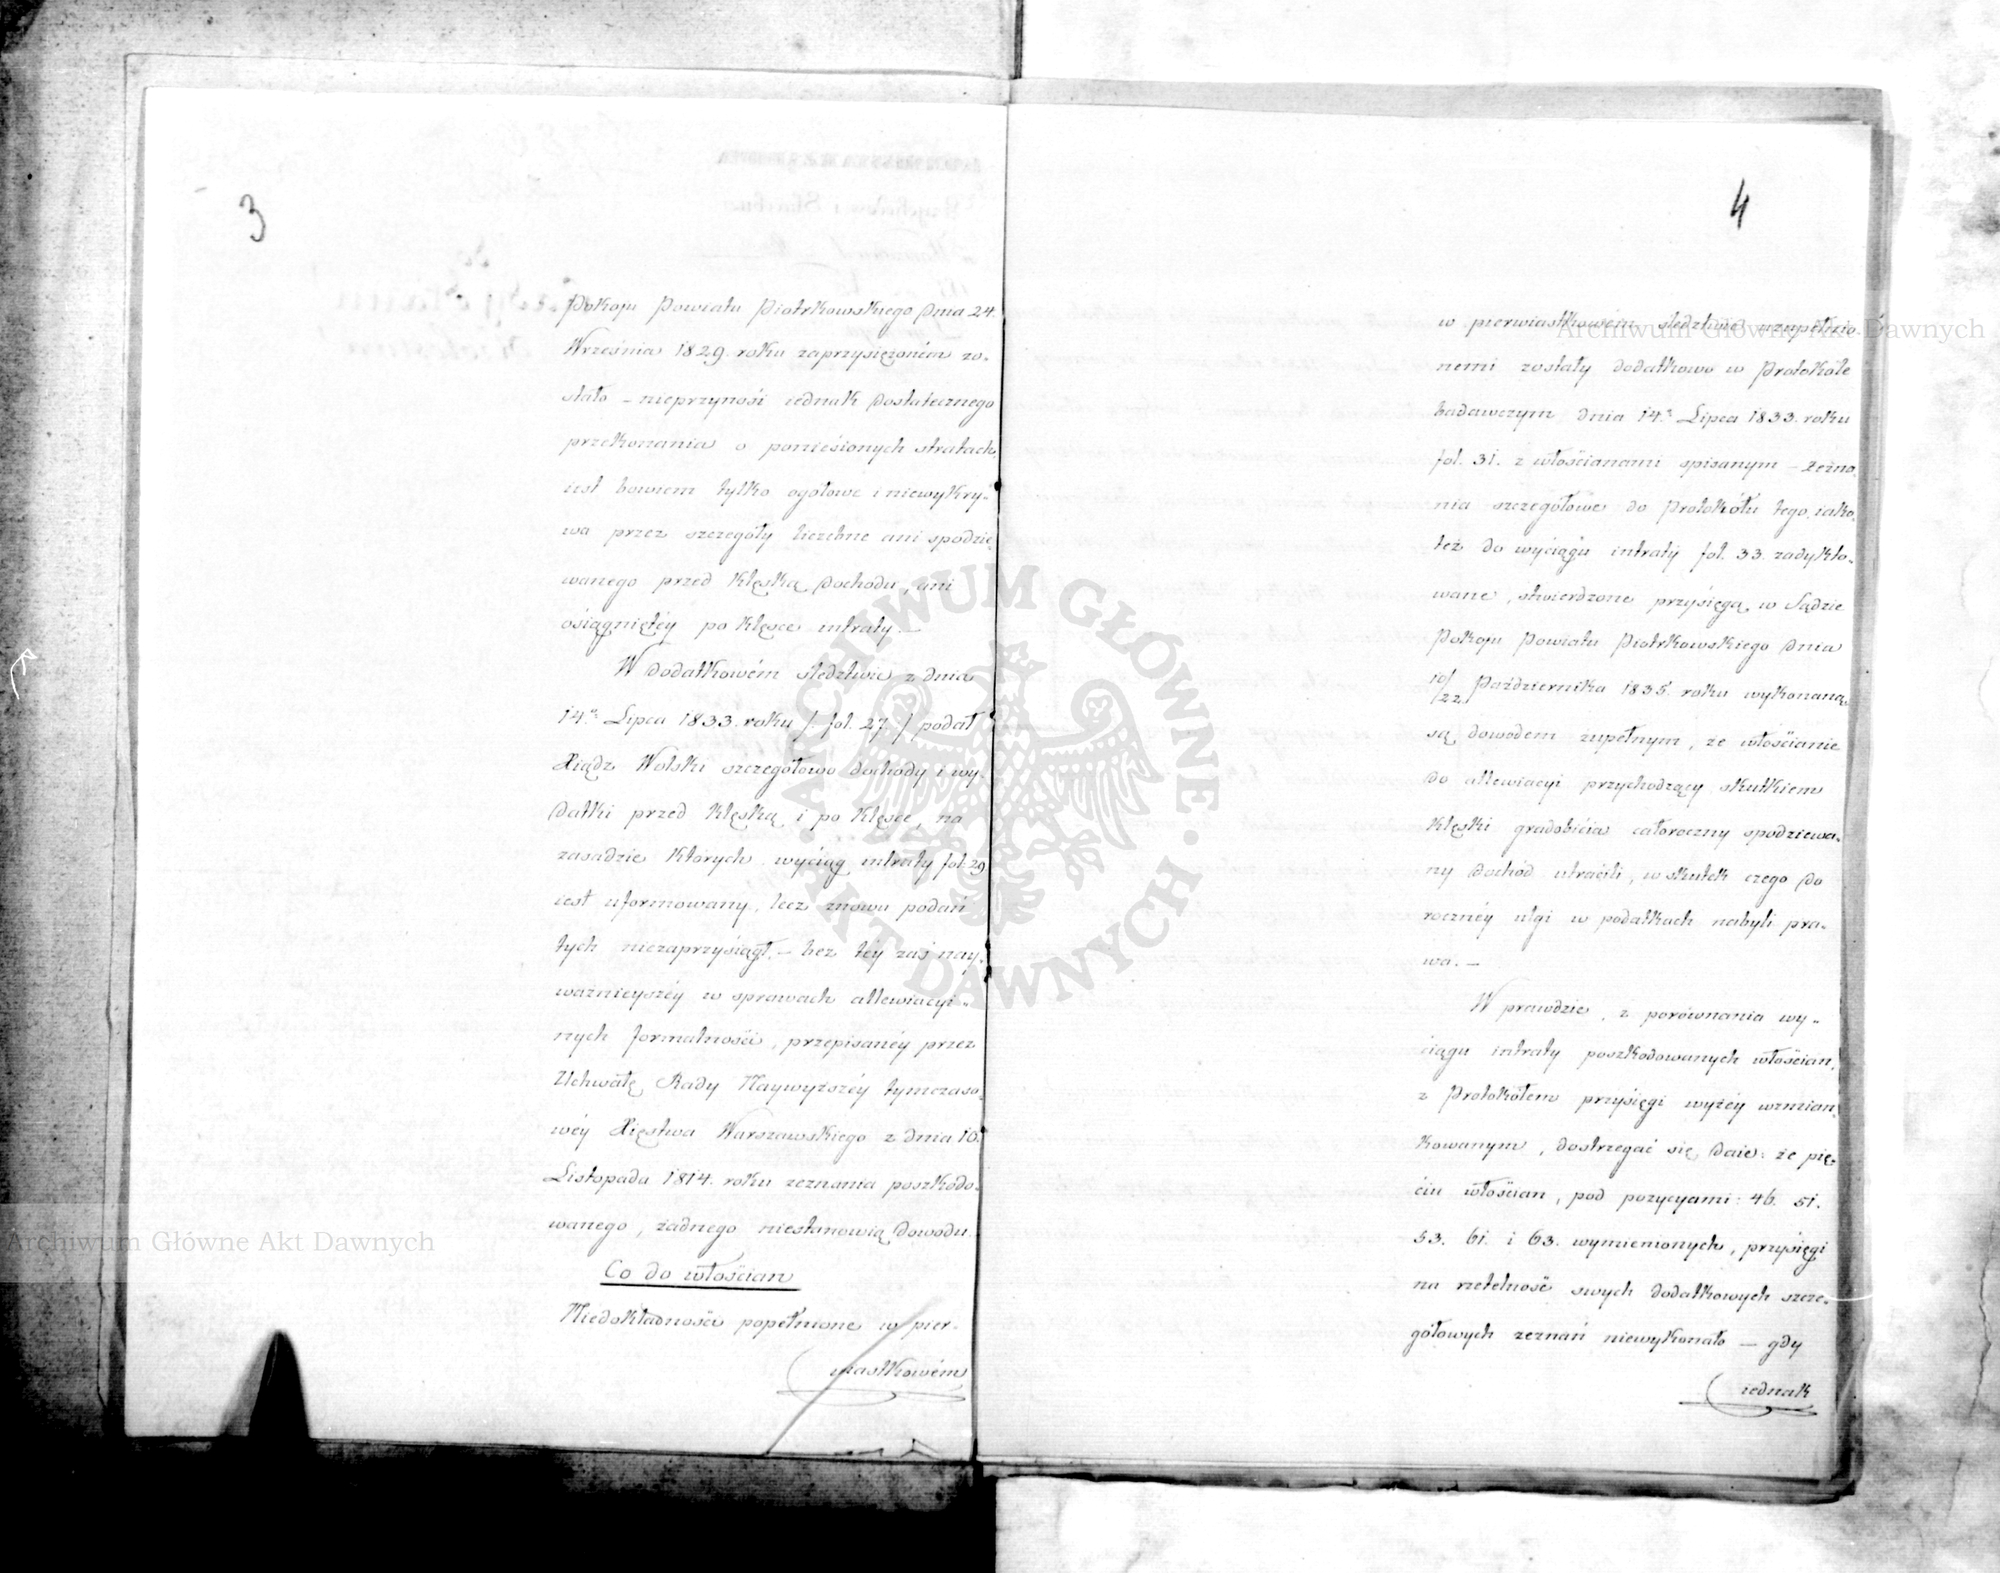 3
Pokoju Powiatu Piotrkowskiego dnia 24.
Września 1829. roku zaprzysiężoném zo-
stało – nieprzynosi iednak dostatecznego
przekonania o poniesionych stratach,
iest bowiem tylko ogółowe i niewykry-
wa przez szczegóły liczebne ani spodzie
wanego przed klęską dochodu, ani
osiągniętéy po klęsce intraty. —
W dodatkowém śledztwie z dnia
14.º Lipca 1833. roku /: fol. 27. / podał
Xiądz Wolski szczegółowo dochody i wy-
datki przed klęską i po klęsce, na
zasadzie których wyciąg intraty fol. 29
iest uformowany, lecz znowu podań
tych niezaprzysiągł. – bez téy zaś nay-
ważnieyszéy w sprawach allewiacyi-
nych formalności, przepisanéy przez
Uchwałę Rady Naywyższéy tymczaso-
wéy Xięstwa Warszawskiego z dnia 10.
Listopada 1814. roku zeznania poszkodo-
wanego, żadnego niestanowią dowodu.
Co do włościan
Niedokładności popełnione w pier-
wiastkowém
4
w pierwiastkowém śledztwie uzupełnio-
nemi zostały dodatkowo w Protokóle
badawczym dnia 14.º Lipca 1833. roku
fol. 31. z włościanami spisanym – Zezna-
nia szczegółowe do Protokółu tego, iako-
też do wyciągu intraty fol. 33. zadykto-
wane, stwierdzone przysięgą w Sądzie
Pokoju Powiatu Piotrkowskiego dnia
10/22 Października 1835. roku wykonaną,
są dowodem zupełnym, że włościanie
do allewiacyi przychodzący skutkiem
klęski gradobicia całoroczny spodziewa-
ny dochód utracili, w skutek czego do
rocznéy ulgi w podatkach nabyli pra-
wa. —
W prawdzie, z porównania wy-
ciągu intraty poszkodowanych włościan,
z Protokółem przysięgi wyżéy wzmian-
kowanym, dostrzegać się daie: że pię-
ciu włościan, pod pozycyami: 46. 51.
53. 61. i 63. wymienionych, przysięgi
na rzetelność swych dodatkowych szcze-
gółowych zeznań niewykonało — gdy
iednak
Archiwum Główne Akt Dawnych
Archiwum Główne Akt Dawnych
ARCHIWUM GŁÓWNE · AKT DAWNYCH ·